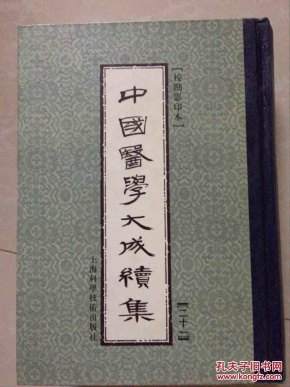 【校勘影印本】
中國醫學大成續集
【二十一】
上海科學技術出版社
孔夫子旧书网